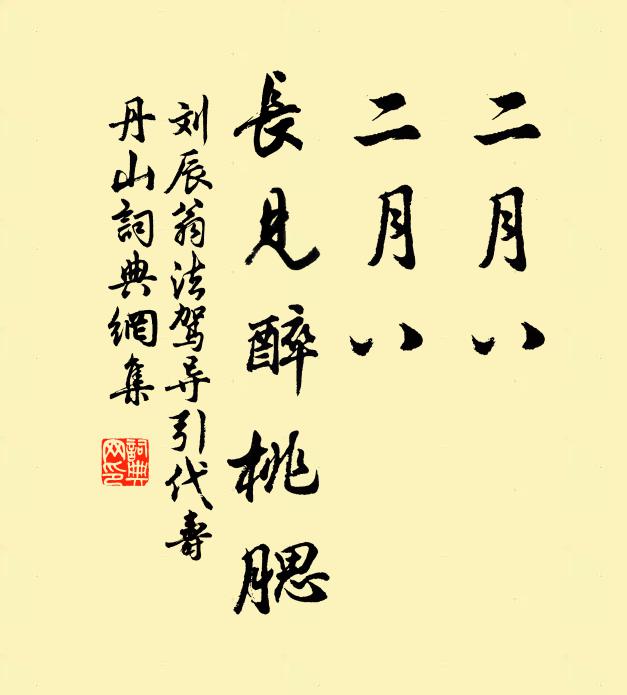 二月八
二月八
長見醉桃腮
刘辰翁法驾导引代壽
丹山詞典網集
詞典
网印